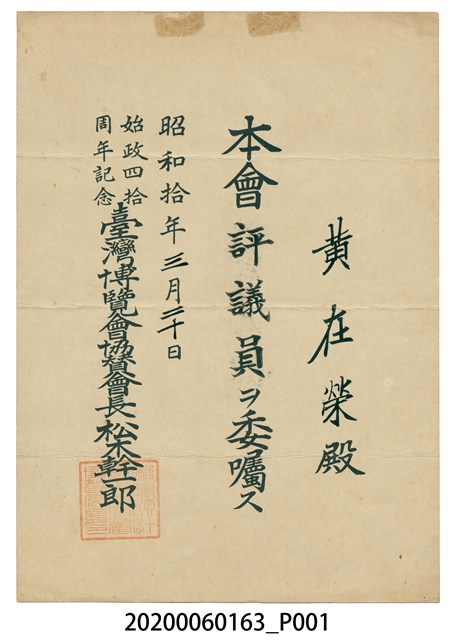 黄在榮殿
本會評議員ヲ委囑ス
昭和拾年三月二十日
始政四拾
周年記念
臺灣博覽會協贊會長松木幹一郎
20200060163_P001